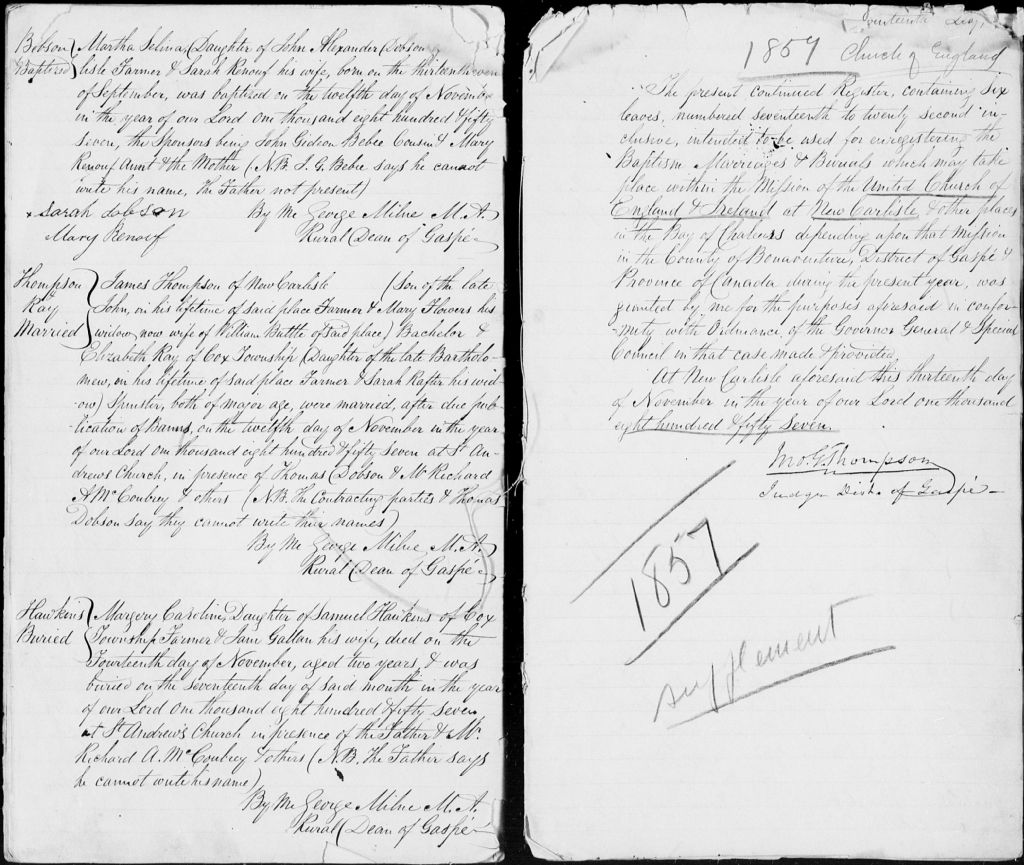 Dobson
Baptized
Martha Selina, Daughter of John Alexander Dobson
lisle Farmer & Sarah Renouf his wife, born on the thirteenth
of September, was baptized on the twelfth day of November
in the year of our Lord one thousand eight hundred & fifty
seven, the Sponsors being John Gideon Bebee Cousin & Mary
Renouf Aunt & the Mother (N.B. J. G. Bebee says he cannot
write his name, the Father not present)
x Sarah dobson By Me George Milne M.A.
Mary Renouf Rural Dean of Gaspé
Thompson
Ray
Married
James Thompson of New Carlisle (Son of the late
John, in his lifetime of said place Farmer & Mary Flowers his
widow, now wife of William Buttle of said place) Bachelor &
Elizabeth Ray of Cox Township (Daughter of the late Bartholo-
mew, in his lifetime of said place Farmer & Sarah Rafter his wid-
ow) Spinster, both of major age, were married, after due pub-
lication of Banns, on the twelfth day of November in the year
of our Lord one thousand eight hundred & fifty seven at St An-
drews Church, in presence of Thomas Dobson & Mr Richard
A. McConbrey & others (N.B. the Contracting parties & Thomas
Dobson say they cannot write their names)
By Me George Milne M.A.
Rural Dean of Gaspé
Hawkins
Buried
Margery Caroline, Daughter of Samuel Hawkins of Cox
Township Farmer & Jane Gallan his wife, died on the
Fourteenth day of November, aged two years, & was
buried on the seventeenth day of said month in the year
of our Lord one thousand eight hundred & fifty seven
at St Andrew's Church in presence of the Father & Mr
Richard A. McConbrey & others (N.B. the Father says
he cannot write his name)
By Me George Milne M.A.
Rural Dean of Gaspé
1857
Church of England
The present continued Register, containing six
leaves, numbered seventeenth to twenty second in-
clusive, intended to be used for enregistering the
Baptism Marriages & Burials which may take
place within the Mission of the United Church of
England & Ireland at New Carlisle & other places
in the Bay of Chaleurs depending upon that Mission
in the County of Bonaventure, District of Gaspé &
Province of Canada during the present year, was
granted by me for the purposes aforesaid in confor-
mity with Ordinance of the Governor General & Special
Council in that case made & provided
At New Carlisle aforesaid this thirteenth day
of November in the year of our Lord one thousand
eight hundred & fifty seven.
Jno. G. Thompson
Judge Dist. of Gaspé
1857
supplement